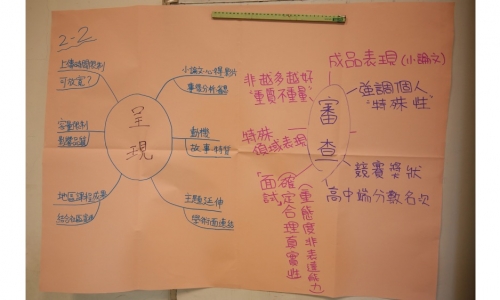 2-2
上傳時間限制
可放寬？
容量限制
地區課程成果
呈現
小論文.心得.影片
事後分析.省思
動機
故事.特質
主題延伸
學術面連結
成品表現(小論文)
強調個人
"特殊性"
競賽獎狀
高中端分數名次
審查
非越多越好
"重質不重量"
特殊
領域表現
「面試」
確定合理真實性
(重態度非表達能力)